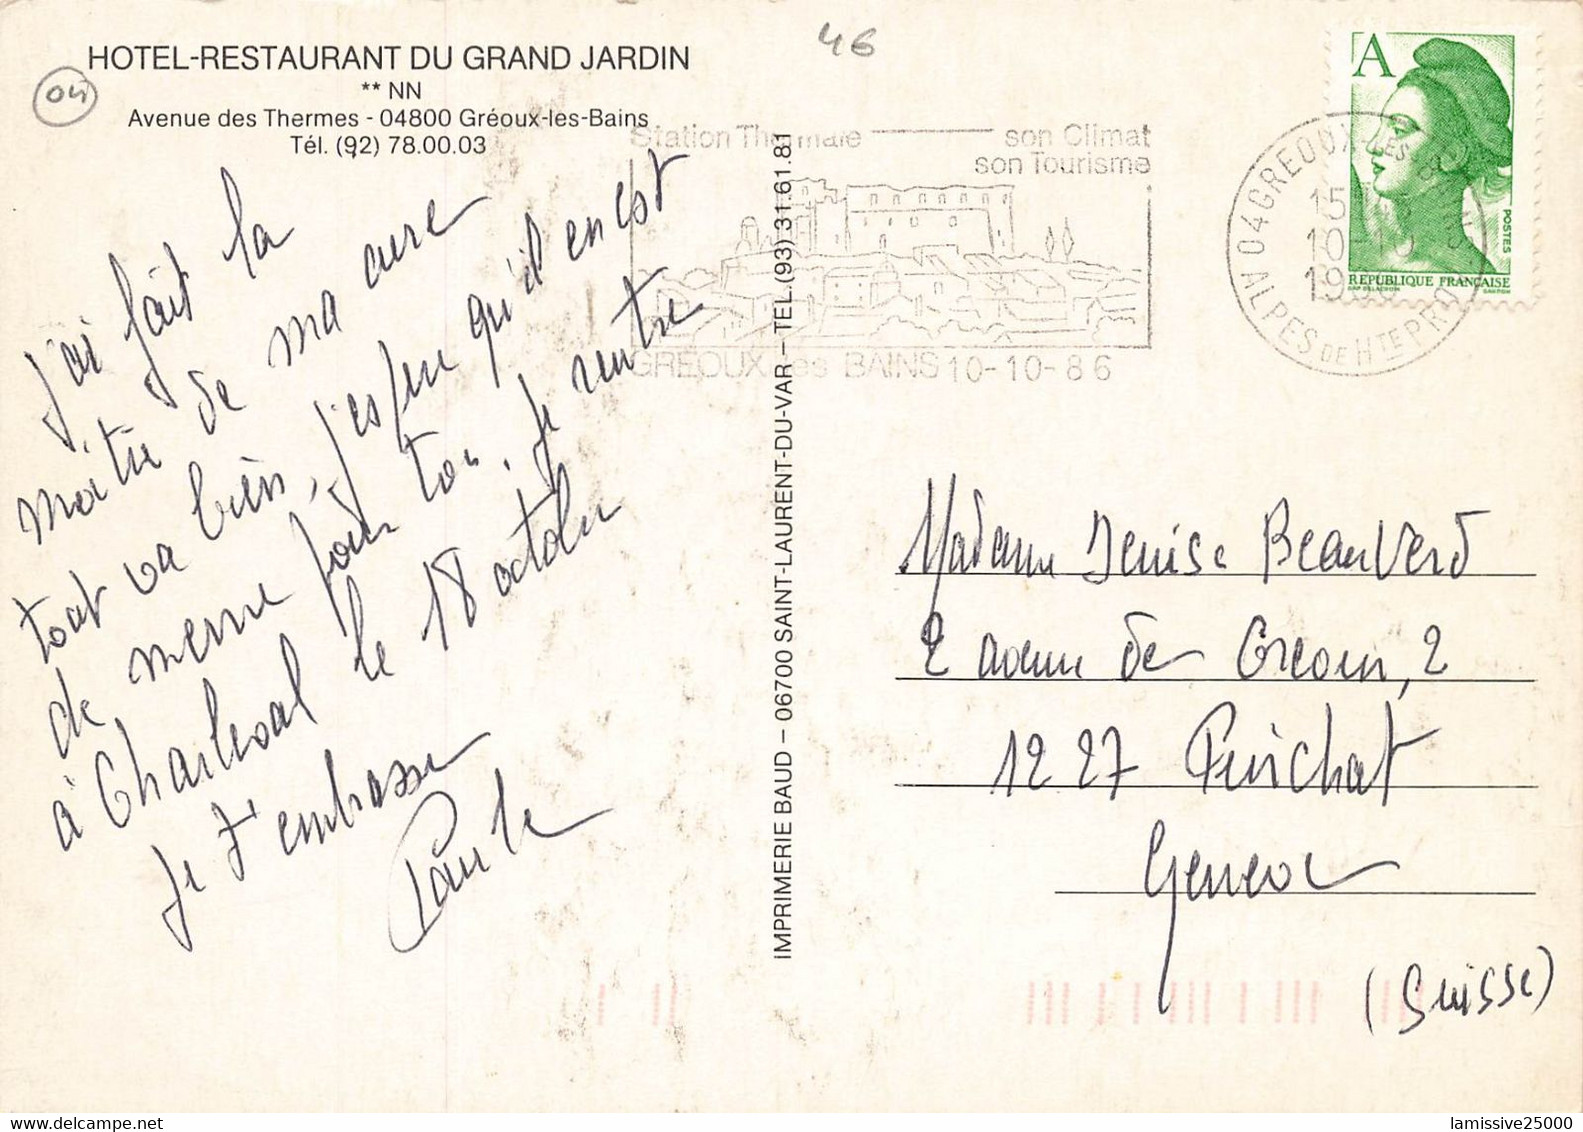 46
HOTEL-RESTAURANT DU GRAND JARDIN
** NN
04
Avenue des Thermes - 04800 Gréoux-les-Bains
Tél. (92) 78.00.03
j'ai fait la
moitié de ma cure
tout va bien, j'espère qu'il en est
de meme pour toi, je rentre
à Charleval le 18 octobre
Je t'embrasse
Paule
IMPRIMERIE BAUD – 06700 SAINT-LAURENT-DU-VAR – TEL. (93) 31.61.81
Station Thermale son Climat
son Tourisme
GREOUX les BAINS 10-10-86
04 GREOUX-LES-BAINS
15H
10-10
1986
ALPES DE HTE PROV
A
POSTES
REPUBLIQUE FRANÇAISE
GANDON
Madame Denise Beauverd
2 avenue de 2
1227
Geneve
(Suisse)
lamissive25000